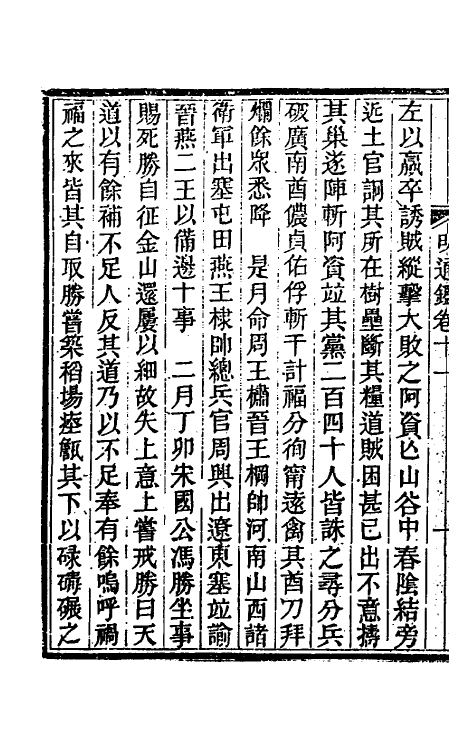 明通鑑卷十一
左以羸卒誘賊縱擊大敗之阿資亾山谷中春陰結旁
近土官詗其所在樹壘斷其糧道賊困甚已出不意擣
其巢遂陣斬阿資竝其黨二百四十人皆誅之尋分兵
破廣南酋儂貞佑俘斬千計福分徇甯遠禽其酋刀拜
爛餘眾悉降　是月命周王橚晉王棡帥河南山西諸
衛軍出塞屯田燕王棣帥總兵官周興出遼東塞竝諭
晉燕二王以備邊十事　二月丁卯宋國公馮勝坐事
賜死勝自征金山還屢以細故失上意上嘗戒勝曰天
道以有餘補不足人反其道乃以不足奉有餘嗚呼禍
福之來皆其自取勝嘗築稻場瘞甀其下以碌碡碾之